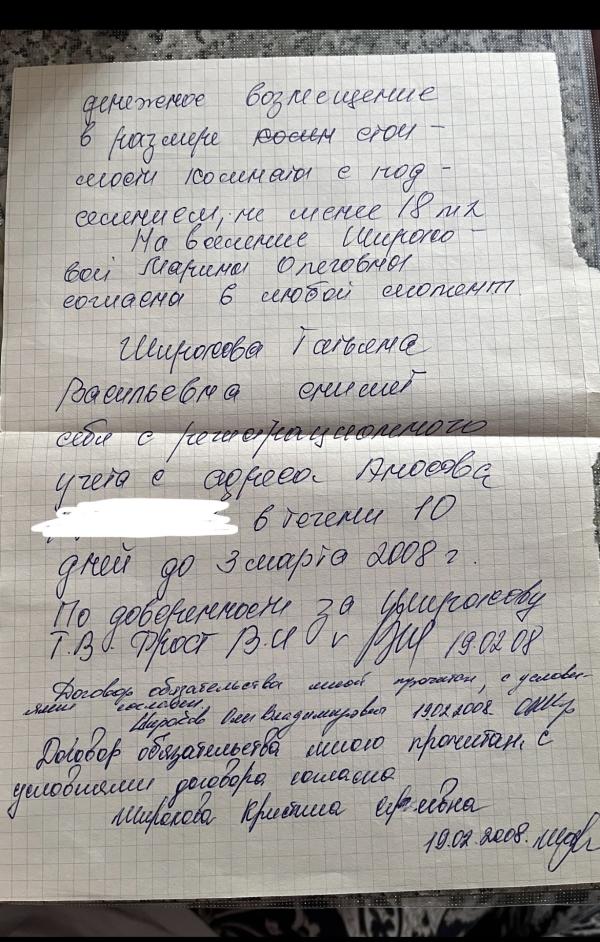 денежное возмещение
в размере комн стои-
мости комнаты с под-
селением, не менее 18 м2
На вселение Широко-
вой Марины Олеговны
согласна в любой момент.
Широкова Татьяна
Васильевна снимет
себя с регистрационного
учета с адреса Аносова
в течени 10
дней до 3 марта 2008 г.
По доверенности за Широкову
Т.В. Фрост В.И 19.02 08
Договор обязательства мной прочитан, с услови-
ями согласен
Широков Олег Владимирович 19.02.2008
Договор обязательства мною прочитан, с
условиями договора согласна
Широкова Кристина
19.02.2008.